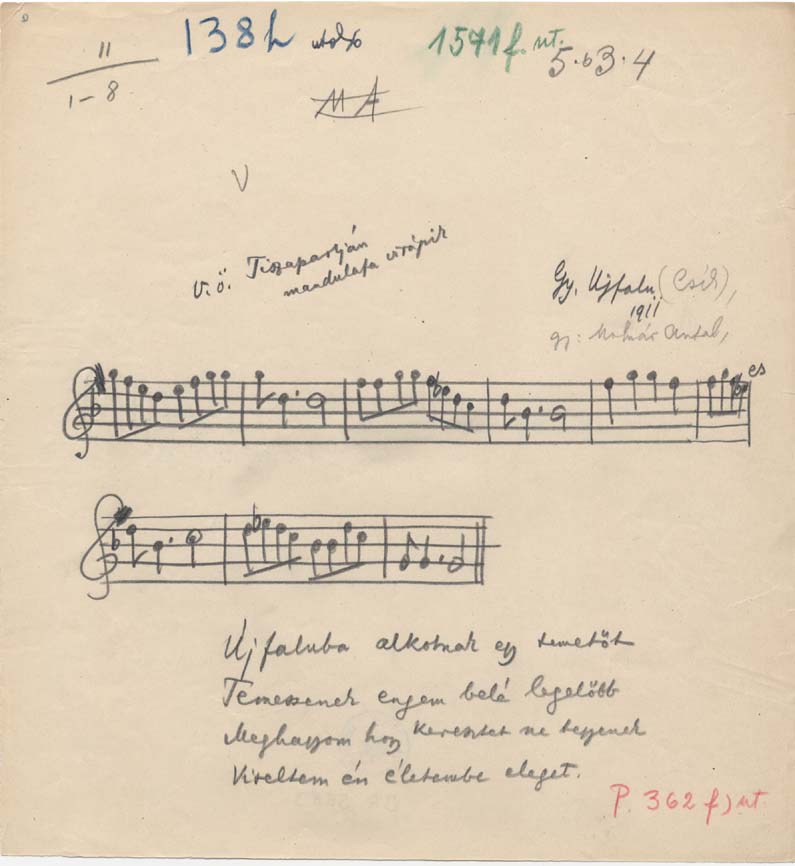 11
1-8
138h utolsó
1571 f. ut.
5·b3·4
MA
V
V. ö. Tiszapartján
mandulafa virágzik
Gy. Ujfalu (Csík),
1911
gy: Molnár Antal,
es
Újfaluba alkotnak egy temetőt
Temessenek engem belé legelőbb
Meghagyom hogy keresztet ne tegyenek
Viseltem én életembe eleget.
P. 362 f) ut.